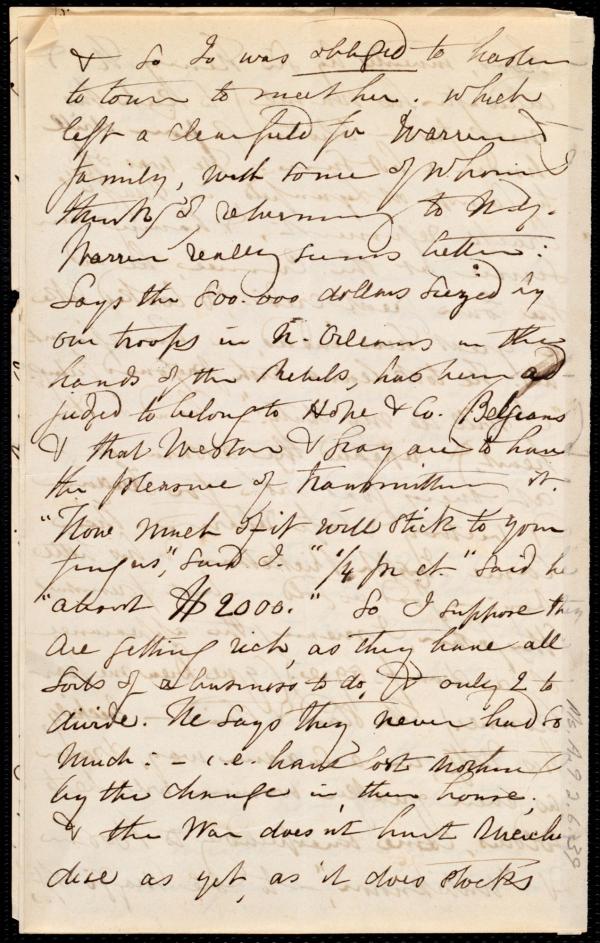 & so Jo was obliged to hasten
to town to meet her. which
left a clear field for Warren
family, with some of whom I
think of returning to N.Y.
Warren really seems better:
Says the 800.000 dollars siezed by
our troops in N. Orleans in the
hands of the Rebels, has been ad
judged to belong to Hope & Co. Belgeans
& that Weston & Gray are to have
the pleasure of transmitting it.
"How much of it will stick to your
fingers", said I. "1/4 pr ct." said he
"about $2000." So I suppose they
are getting rich, as they have all
sorts of a business to do, & only 2 to
divide. He says they never had so
much: - i.e. have lost nothing
by the change in their house;
& the War doesn't hurt Merchan
dise as yet, as it does stocks
Ms.A.9.2.6.39